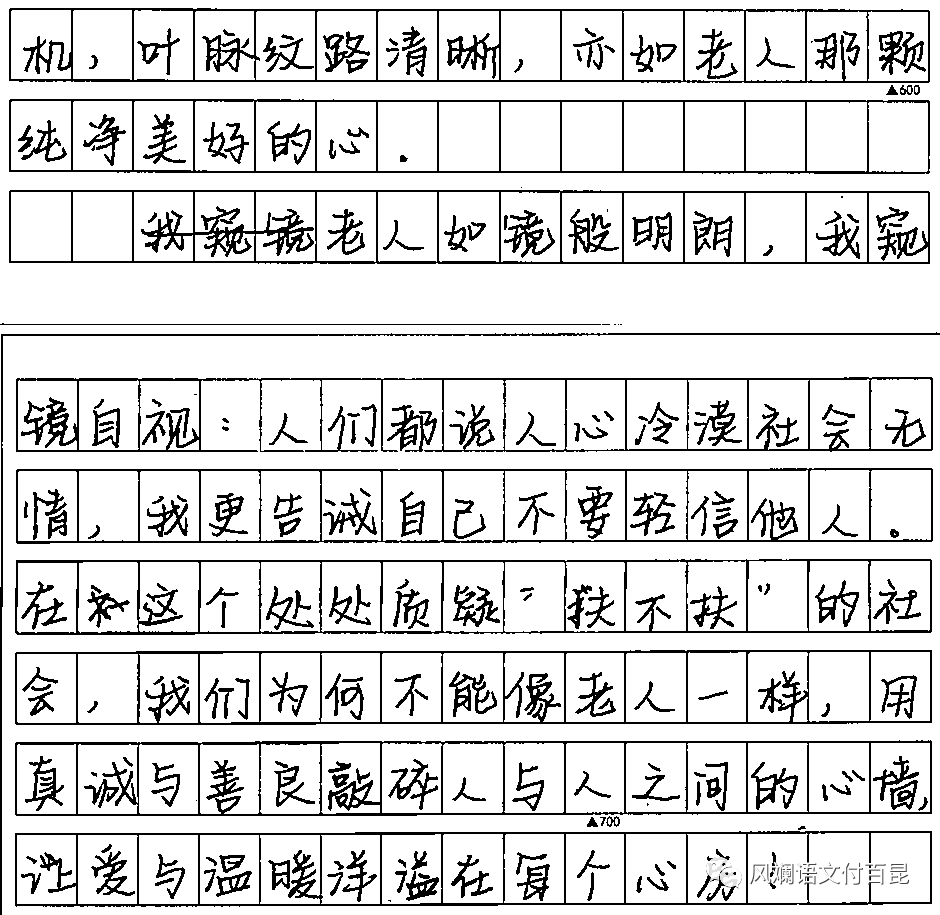 机，叶脉纹路清晰，亦如老人那颗
▲600
纯净美好的心．
我窥镜老人如镜般明朗，我窥
镜自视：人们都说人心冷漠社会无
情，我更告诫自己不要轻信他人。
在这个处处质疑“扶不扶”的社
会，我们为何不能像老人一样，用
真诚与善良敲碎人与人之间的心墙，
▲700
让爱与温暖洋溢在每个心房！
风斓语文付百昆